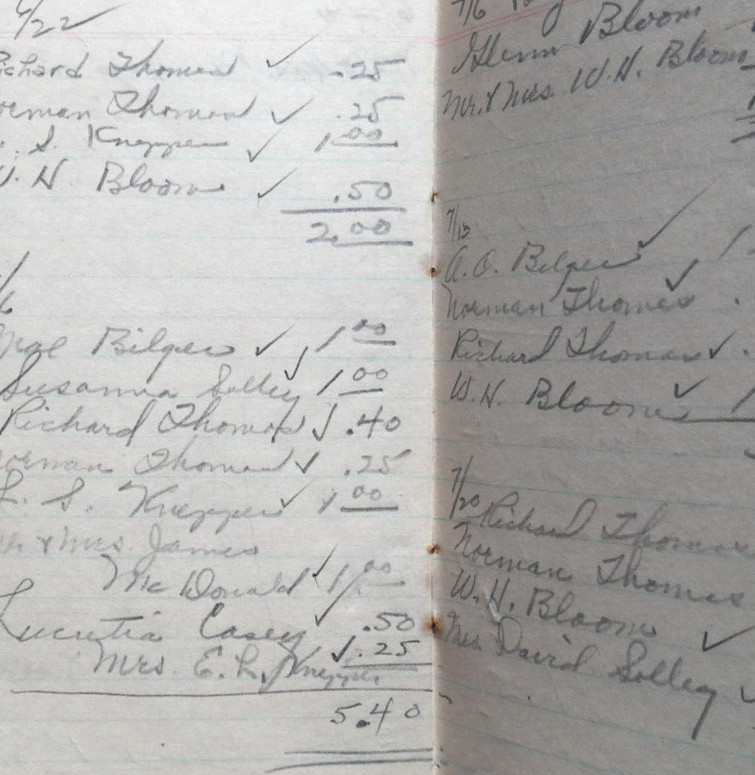 6/22
Richard Thomas ✓ .25
Norman Thomas ✓ .25
L. S. Knepper ✓ 1.00
W. H. Bloom ✓ .50
2.00
Mae Bilger ✓ 1.00
Susanna Solley ✓ 1.00
Richard Thomas ✓ .40
Norman Thomas ✓ .25
L. S. Knepper ✓ 1.00
Mr & Mrs. James
McDonald ✓ 1.00
Lucretia Casey ✓ .50
Mrs. E. L. Knepper ✓ .25
5.40
7/6
Glenn Bloom
Mr. & Mrs. W. H. Bloom
7/13
A. O. Bilger ✓
Norman Thomas ✓
Richard Thomas ✓
W. H. Bloom ✓
7/20
Richard Thomas
Norman Thomas
W. H. Bloom ✓
Mrs David Solley ✓